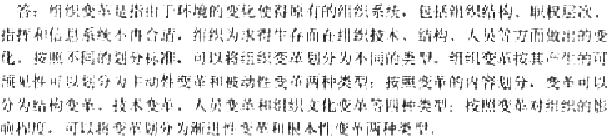 答：组织变革是指由于环境的变化使得原有的组织系统，包括组织结构、职权层次、
指挥和信息系统不再合适，组织为求得生存而在组织技术、结构、人员等方面做出的变
化。按照不同的划分标准，可以将组织变革划分为不同的类型。组织变革按其产生的可
预见性可以划分为主动性变革和被动性变革两种类型；按照变革的内容划分，变革可以
分为结构变革、技术变革、人员变革和组织文化变革等四种类型；按照变革对组织的影
响程度，可以将变革划分为渐进性变革和根本性变革两种类型。